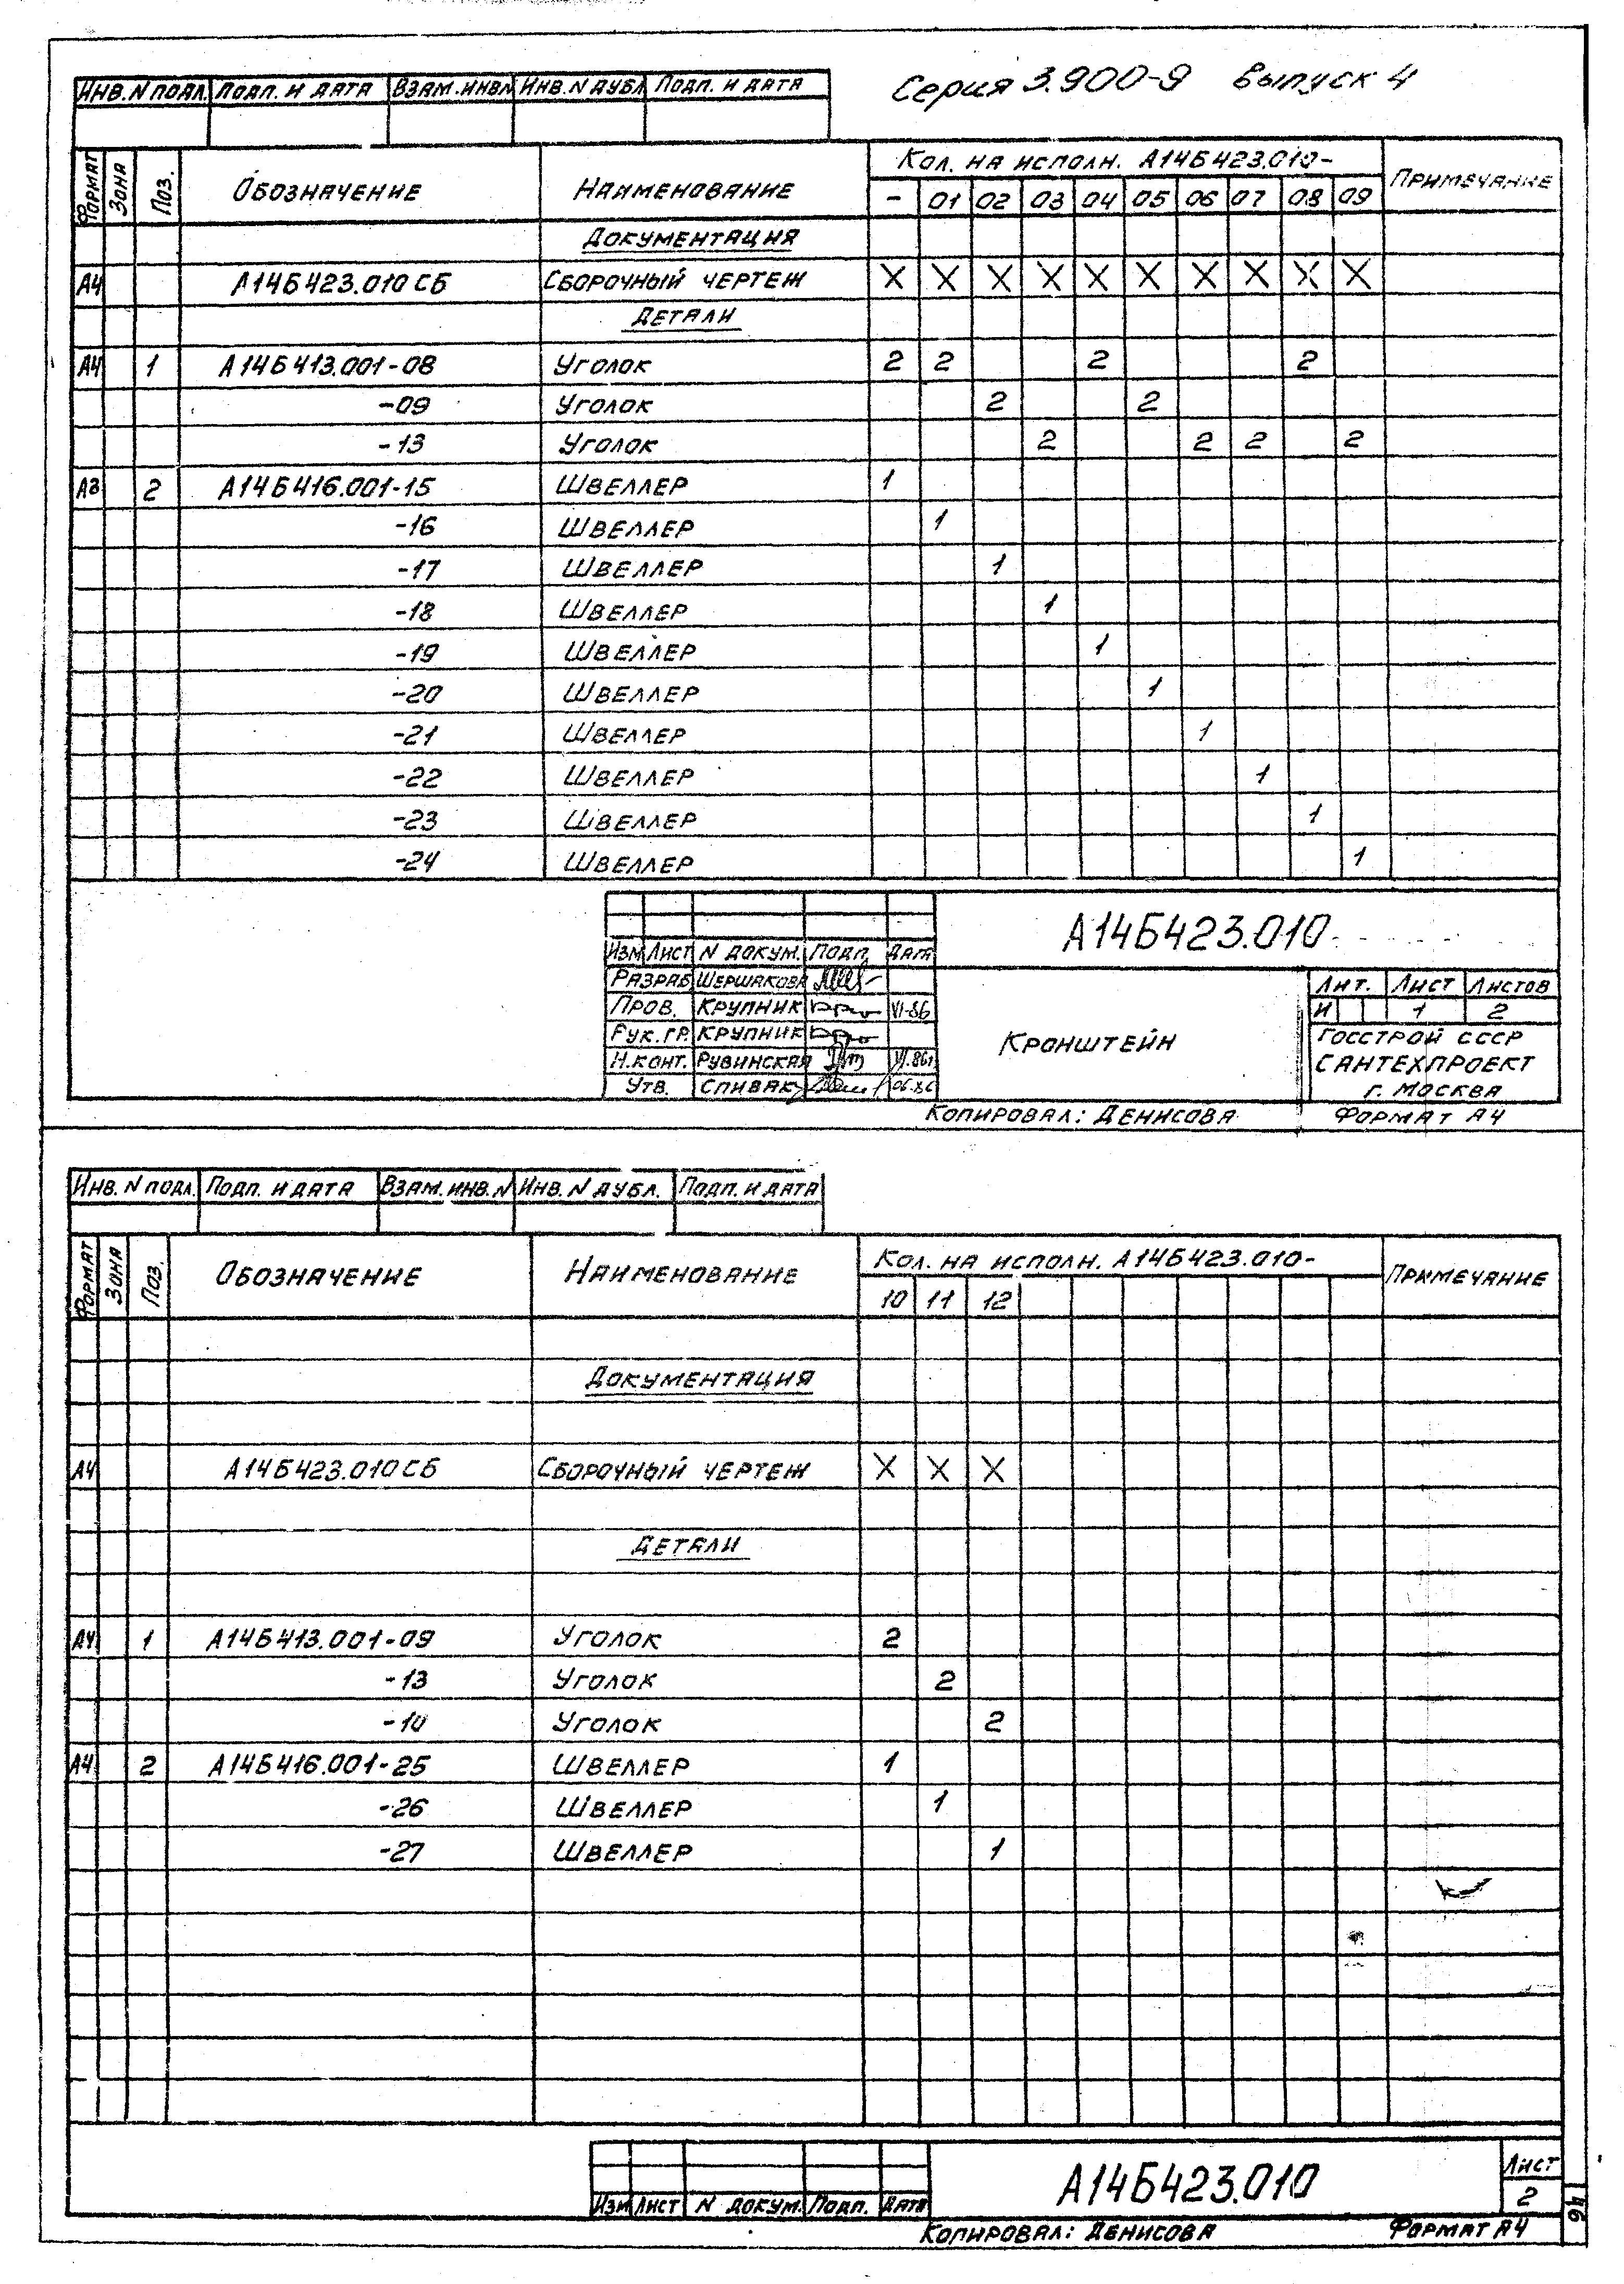 Серия 3.900-9 выпуск 4
Инв. N подл. Подп. и дата Взам. инв. N Инв. N дубл. Подп. и дата
Формат Зона Поз. Обозначение Наименование Кол. на исполн. А14Б423.010- Примечание
- 01 02 03 04 05 06 07 08 09
Документация
А4 А14Б423.010 СБ Сборочный чертеж X X X X X X X X X X
Детали
А4 1 А14Б413.001-08 Уголок 2 2 2 2
-09 Уголок 2 2
-13 Уголок 2 2 2 2
А3 2 А14Б416.001-15 Швеллер 1
-16 Швеллер 1
-17 Швеллер 1
-18 Швеллер 1
-19 Швеллер 1
-20 Швеллер 1
-21 Швеллер 1
-22 Швеллер 1
-23 Швеллер 1
-24 Швеллер 1
А14Б423.010
Изм Лист N докум. Подп. Дата
Разраб Шершакова
Пров. Крупник VI-86
Рук. гр. Крупник
Н. конт. Рувинская VI.86
Утв. Спивак
Кронштейн
Лит. Лист Листов
И 1 2
Госстрой СССР
Сантехпроект
г. Москва
Копировал: Денисова Формат А4
Инв. N подл. Подп. и дата Взам. инв. N Инв. N дубл. Подп. и дата
Формат Зона Поз. Обозначение Наименование Кол. на исполн. А14Б423.010- Примечание
10 11 12
Документация
А4 А14Б423.010СБ Сборочный чертеж X X X
Детали
А4 1 А14Б413.001-09 Уголок 2
-13 Уголок 2
-10 Уголок 2
А4 2 А14Б416.001-25 Швеллер 1
-26 Швеллер 1
-27 Швеллер 1
А14Б423.010
Лист
2
Изм Лист N докум. Подп. Дата
Копировал: Денисова Формат А4